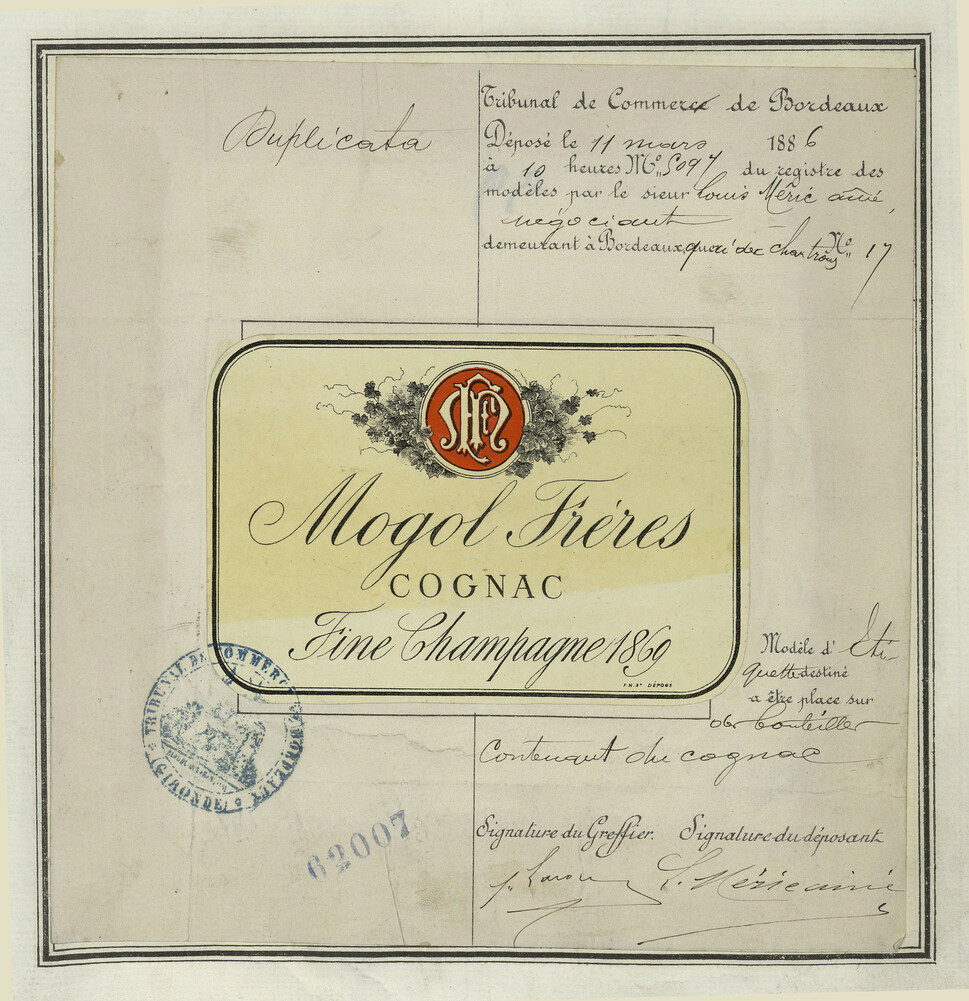 Duplicata
Tribunal de Commerce de Bordeaux
Déposé le 11 mars 1886
à 10 heures No. 5097 du registre des
modèles par le sieur Louis Méric ainé,
négociant
demeurant à Bordeaux, quai des Chartrons No. 17
Mogol Fréres
COGNAC
Fine Champagne 1869
F.H. Bx DÉPOSÉ
Modèle d' Éti-
quette destiné
a être place sur
des bouteilles
Contenant du cognac
TRIBUNAL DE COMMERCE BORDEAUX
(GIRONDE)
62007
Signature du Greffier. Signature du déposant
L. Méric ainé